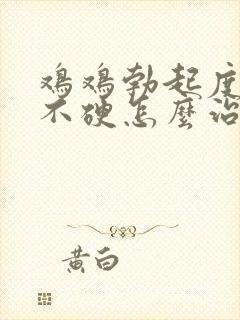 鸡鸡勃起度
不硬怎麼治
黄白